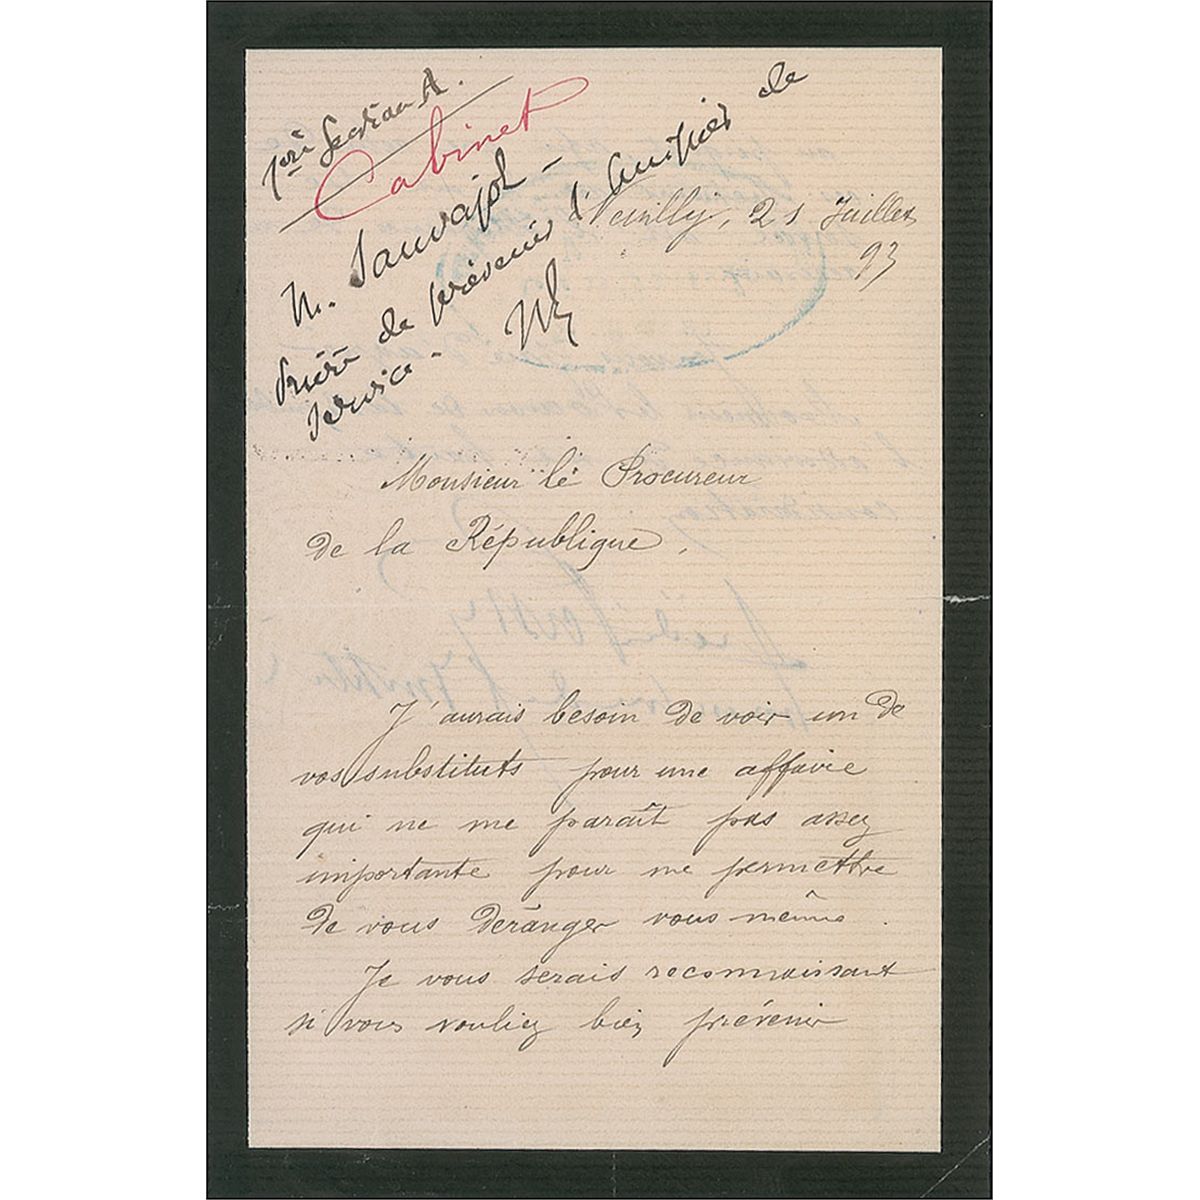 1ère Section A.
Cabinet
M. Sauvajol -
Prière de prévenir l'huissier de
service -
Neuilly, 21 Juillet
93
Monsieur le Procureur
de la République,
J'aurais besoin de voir un de
vos substituts pour une affaire
qui ne me paraît pas assez
importante pour me permettre
de vous déranger vous même.
Je vous serais reconnaissant
si vous vouliez bien prévenir